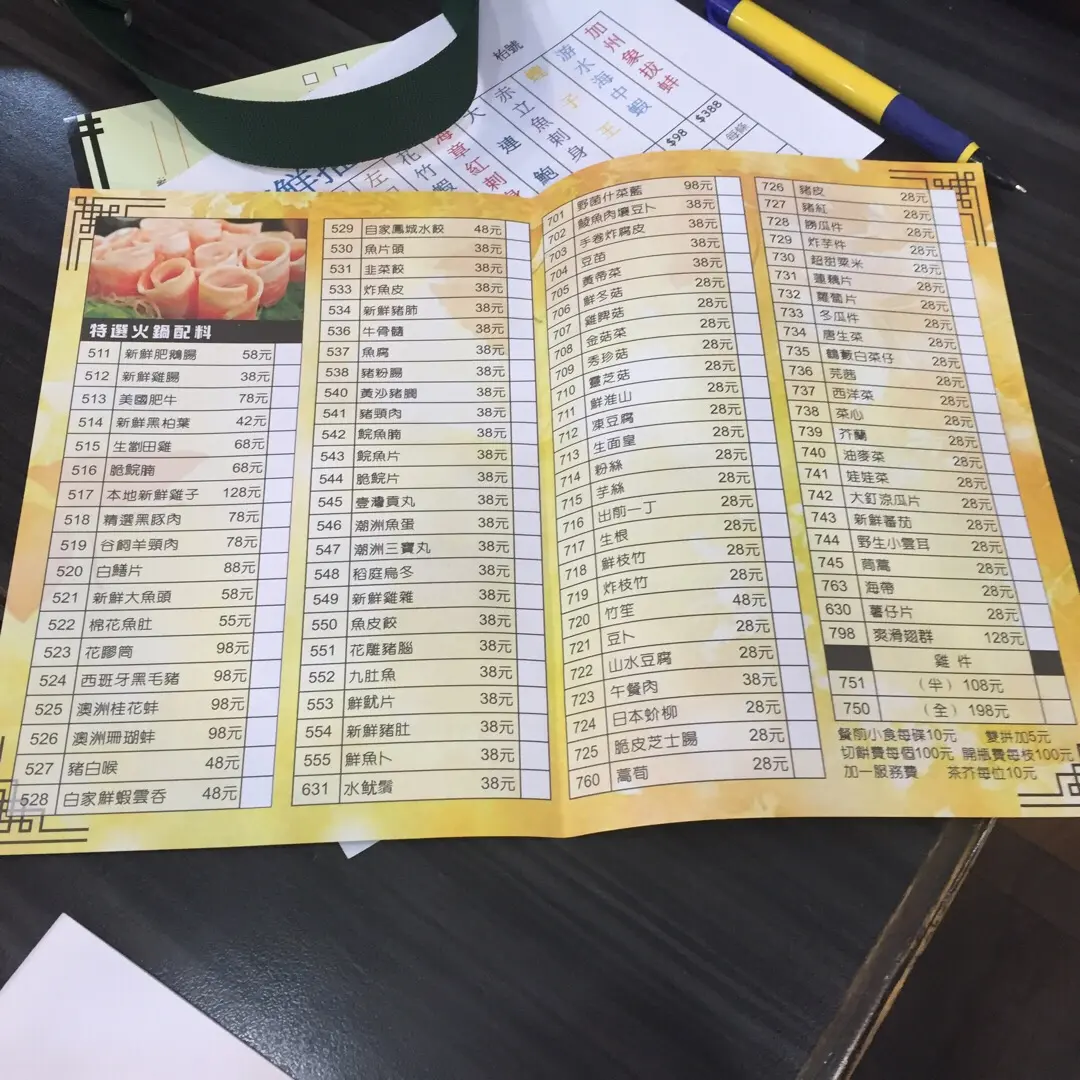 枱號
加州象拔蚌
游水海中蝦
赤立魚刺身
$98
$388
每條
特選火鍋配料
511 新鮮肥鵝腸 58元
512 新鮮雞腸 38元
513 美國肥牛 78元
514 新鮮黑柏葉 42元
515 生劏田雞 68元
516 脆鯇腩 68元
517 本地新鮮雞子 128元
518 精選黑豚肉 78元
519 谷飼羊頸肉 78元
520 白鱔片 88元
521 新鮮大魚頭 58元
522 棉花魚肚 55元
523 花膠筒 98元
524 西班牙黑毛豬 98元
525 澳洲桂花蚌 98元
526 澳洲珊瑚蚌 98元
527 豬白喉 48元
528 自家鮮蝦雲吞 48元
529 自家鳳城水餃 48元
530 魚片頭 38元
531 韭菜餃 38元
533 炸魚皮 38元
534 新鮮豬肺 38元
536 牛骨髓 38元
537 魚腐 38元
538 豬粉腸 38元
540 黃沙豬膶 38元
541 豬頸肉 38元
542 鯇魚腩 38元
543 鯇魚片 38元
544 脆鯇片 38元
545 壹濤貢丸 38元
546 潮洲魚蛋 38元
547 潮洲三寶丸 38元
548 稻庭烏冬 38元
549 新鮮雞雜 38元
550 魚皮餃 38元
551 花雕豬腦 38元
552 九肚魚 38元
553 鮮魷片 38元
554 新鮮豬肚 38元
555 鮮魚卜 38元
631 水魷鬚 38元
701 野菌什菜籃 98元
702 鯪魚肉釀豆卜 38元
703 手卷炸腐皮 38元
704 豆苗 38元
705 黃帝菜 38元
706 鮮冬菇 28元
707 雞脾菇 28元
708 金菇菜 28元
709 秀珍菇 28元
710 靈芝菇 28元
711 鮮淮山 28元
712 凍豆腐 28元
713 生面皇 28元
714 粉絲 28元
715 芋絲 28元
716 出前一丁 28元
717 生根 28元
718 鮮枝竹 28元
719 炸枝竹 28元
720 竹笙 48元
721 豆卜 28元
722 山水豆腐 28元
723 午餐肉 38元
724 日本蚧柳 28元
725 脆皮芝士腸 28元
760 萵荀 28元
726 豬皮 28元
727 豬紅 28元
728 勝瓜件 28元
729 炸芋件 28元
730 超甜粟米 28元
731 蓮藕片 28元
732 蘿蔔片 28元
733 冬瓜件 28元
734 唐生菜 28元
735 鶴藪白菜仔 28元
736 芫茜 28元
737 西洋菜 28元
738 菜心 28元
739 芥蘭 28元
740 油麥菜 28元
741 娃娃菜 28元
742 大釘涼瓜片 28元
743 新鮮蕃茄 28元
744 野生小雲耳 28元
745 茼蒿 28元
763 海帶 28元
630 薯仔片 28元
798 爽滑翅群 128元
雞件
751 （半）108元
750 （全）198元
餐前小食每碟10元 雙拼加5元
切餅費每個100元 開瓶費每枝100元
加一服務費 茶芥每位10元